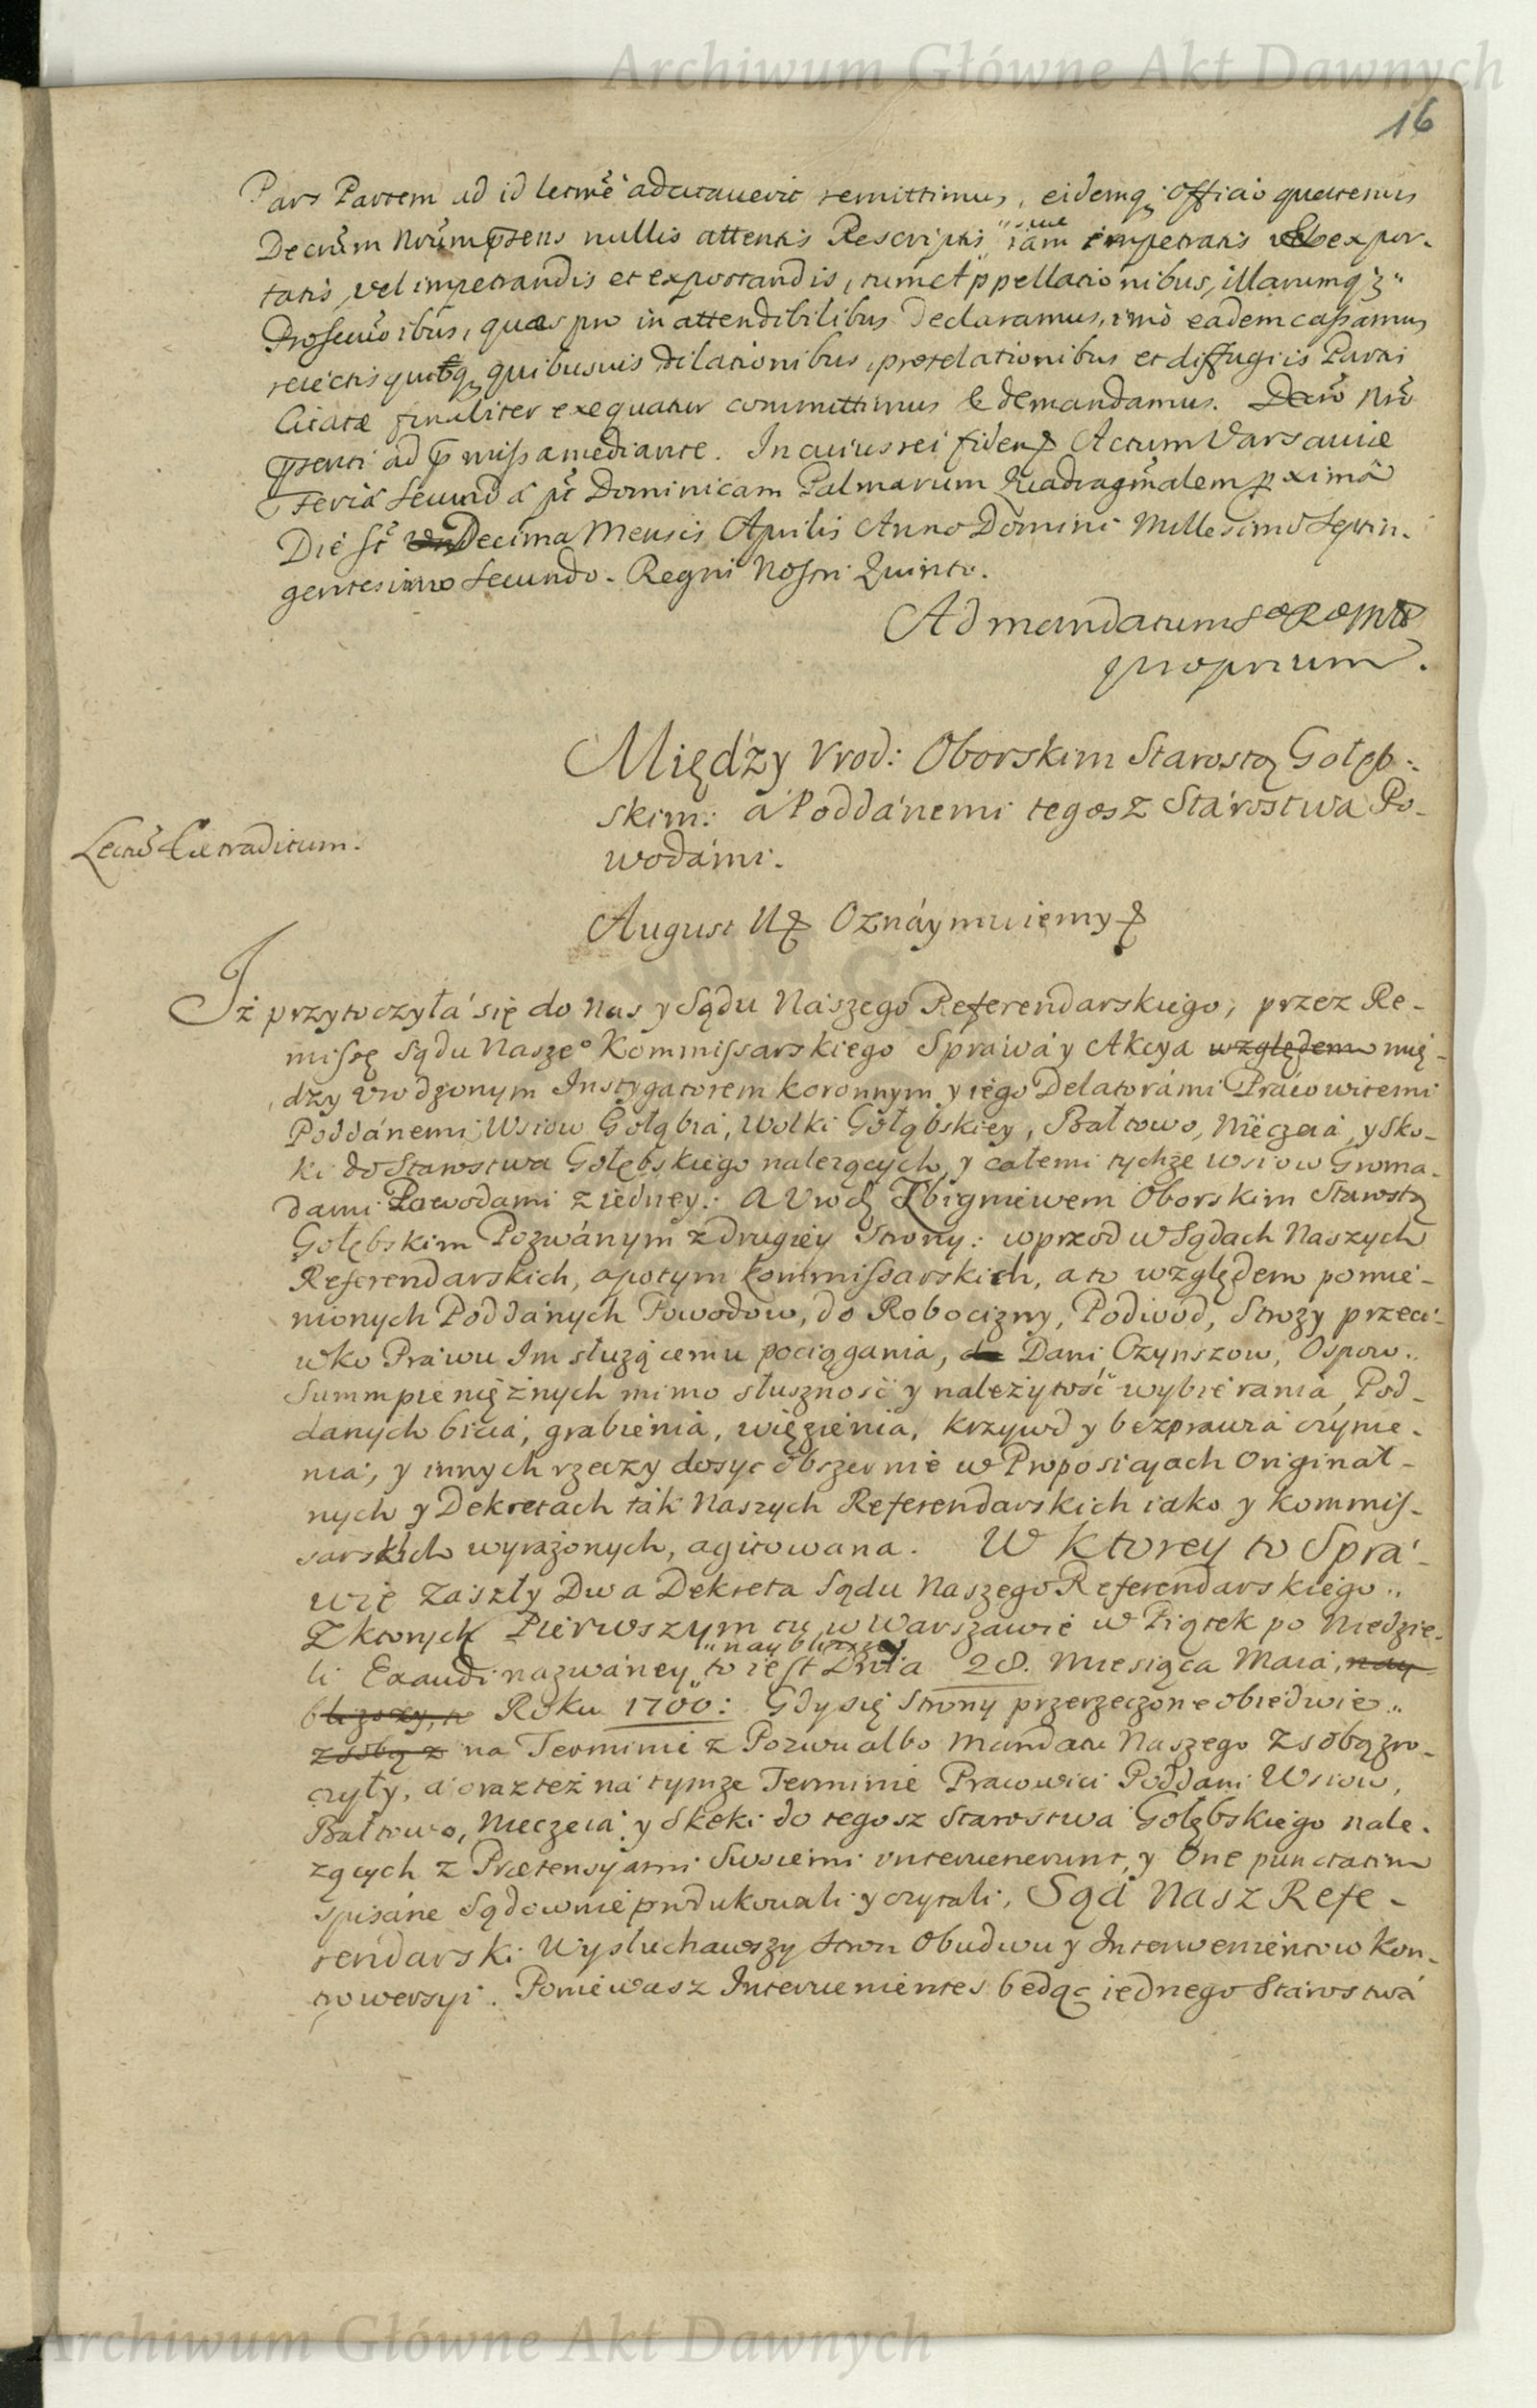 Archiwum Główne Akt Dawnych
16
Pars Partem ad id lecrm̃e adcitaverit remittimus, eidemq; Officio quatenus
Decrũm Nrũm p̃sens nullis attentis Rescriptis siue iam impetratis vel expor-
tatis, vel impetrandis et exportandis, tum et Appellationibus, illarumq;
Prosecuõibus, quæ pro inattendibilibus Declaramus, imò eadem cassamus,
reiectis quibusvis dilationibus, protelationibus et diffugiis Parti
Citatæ finaliter exequatur committimus & demandamus. Decrõ Nrõ
p̃senti ad p̃missa mediante. In cuius rei fidem Actum Varsaviæ
Feria Secunda pt̃ Dominicam Palmarum Quadragm̃alem pximã
Die st̃ Decima Mensis Aprilis Anno Domini Millesimo Septin-
gentesimo Secundo. Regni Nostri Quinto.
Ad mandatum S æ R æ Mttis
proprium.
Między Vrod: Oborskim Starostą Gołęb-
skim: á Poddánemi tegosz Stárostwa Po-
wodámi.
Lectũ & extraditum.
August II Oznáymuiemy
Iż przytoczyłá się do Nas y Sądu Nászego Referendarskiego, przez Re-
missę Sądu Naszeo Kommissarskiego Spráwá y Akcya względem mię-
dzy Vrodzonym Instygatorem Koronnym y iego Delatorámi Prácowitemi
Poddánemi Wsiow Gołąbiá, Wolki Gołąbskiey, Bałtowo, Niecżeiá, y Sko-
ki do Starostwa Gołębskiego należących, y całemi tychże wsiow Groma-
dami Powodami z iedney: A Urodz Zbigniewem Oborskim Starostą
Gołębskim Pozwánym z drugiey Strony: wprzod w Sądach Naszych
Referendarskich, apotym Kommissarskich, a to względem pomie-
nionych Poddánych Powodow, do Robocizny, Podwod, Strozy przeci-
wko Práwu Im służącemu pociągánia, do Dani, Czynszow, Ospow
Summ pieniężnych mimo słusznosć y należytość wybiéraniá, Pod-
danych biciá, grabieniá, więzieniá, krzywd y bezprawiá czynie-
niá, y innych rzeczy dosyc obszernie w Proposicyách Originál-
nych y Dekretách ták Naszych Referendarskich iako y Kommis-
sarskich wyrażonych, agitowana. W Ktorey to Sprá-
wie Zászły Dwa Dekreta Sądu Naszego Referendarskiego
Z ktorych Pierwszym tu w Warszawie w Piątek po Niedzie-
li Exaudi nazwáney naybliższey to iest Dniá 28. Miesiąca Maiá, nay-
bliższy, w Roku 1700: Gdy się Strony przerzeczone obiedwie
z sobą z na Terminie z Pozwu albo Mandatu Naszego z sobą zro-
czyły, á oraz też ná tymże Terminie Pracowici Poddani Wsiow,
Bałtowo, Nieczeiá y Skoki do tegosz Starostwa Gołębskiego nale-
żących z Prætensyami Swoiemi intervenerunt, y One punctatim
spisáne Sądownie produkowali y czytali, Sąd Nasz Refe-
rendarski Wysłuchawszy Stron Obudwu y Interwenientow Kon-
trowersyi. Poniewasz Intervenientes będąc iednego Stárostwá
Archiwum Główne Akt Dawnych